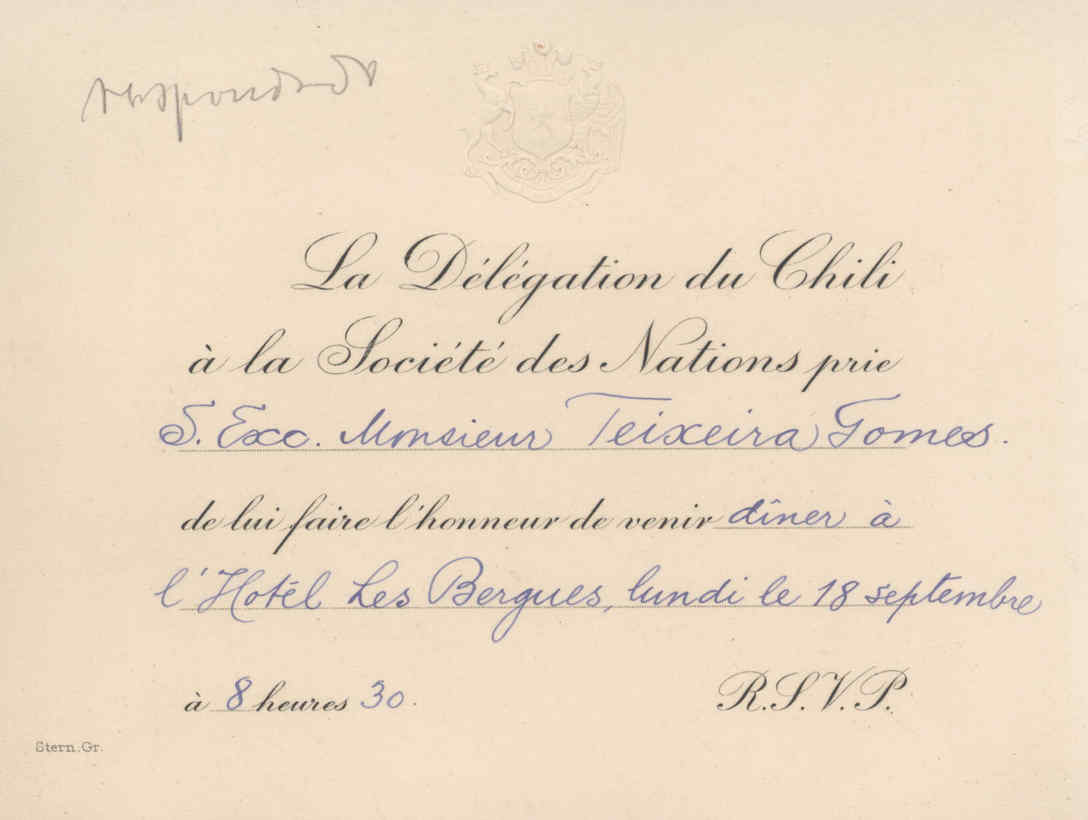 respondido
La Délégation du Chili
à la Société des Nations prie
S. Exc. Monsieur Teixeira Gomes.
de lui faire l'honneur de venir dîner à
l'Hotel Les Bergues, lundi le 18 septembre
à 8 heures 30.
R.S.V.P.
Stern.Gr.